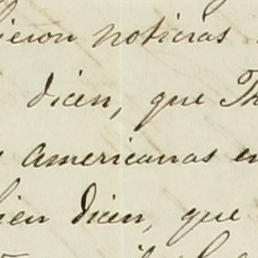 noticias
dicen, que Th
americanas en
dicen, que